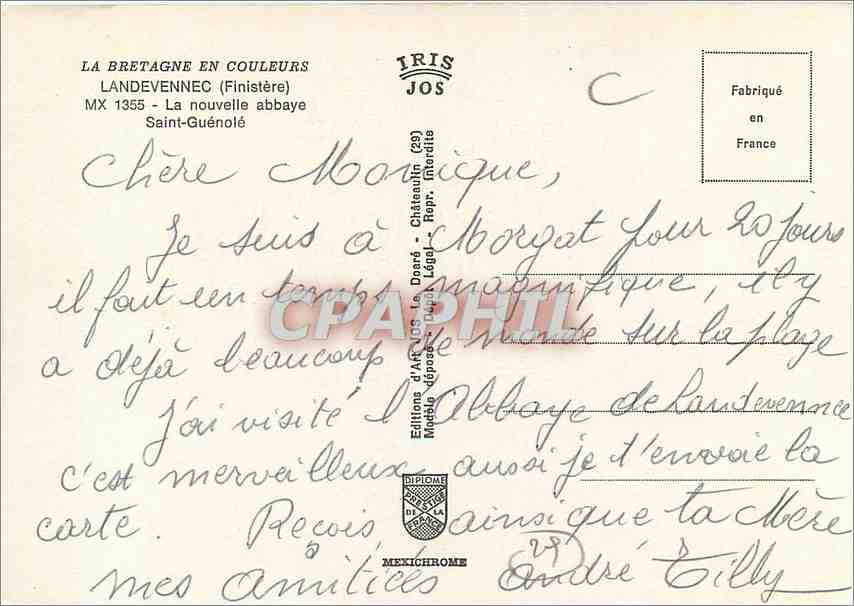 LA BRETAGNE EN COULEURS
LANDEVENNEC (Finistère)
MX 1355 - La nouvelle abbaye
Saint-Guénolé
IRIS
JOS
C
Fabriqué
en
France
Chère Monique,
Je suis à Morgat pour 20 jours
il fait un temps magnifique, il y
a déjà beaucoup de monde sur la plage
J'ai visité l'Abbaye de Landevennec
c'est merveilleux aussi je t'envoie la
carte. Reçois ainsi que ta Mère
mes amitiés André Tilly
29
Editions d'Art JOS Le Doaré - Châteaulin (29)
Modèle déposé - Dépôt Légal - Repr. Interdite
CPAPHIL
DIPLOME
PRESTIGE
DE LA
FRANCE
MEXICHROME